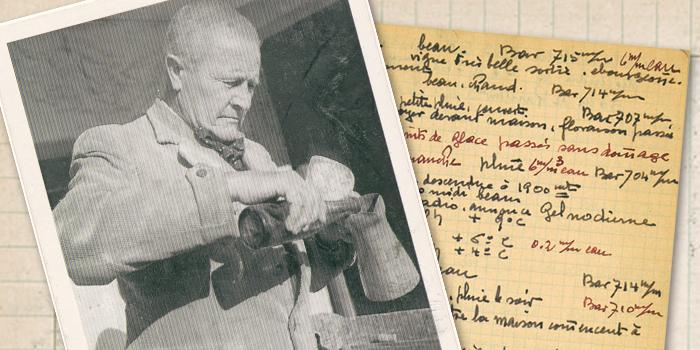 beau. Bar 715 m/m 6 m/m eau
vigne très belle sortie.
beau, chaud. Bar 714 m/m
petite pluie, Bar 707 m/m
devant maison, floraison passée
de glace passés sans domage
pluie 6 m/m 3 eau Bar 704 m/m
descendue à 1900 mt
midi beau
radio, annonce Gel nocturne
+ 9° C
+ 6° C 0.2 m/m eau
+ 4° C
eau Bar 714 m/m
pluie le soir Bar 710 m/m
la maison commencent à